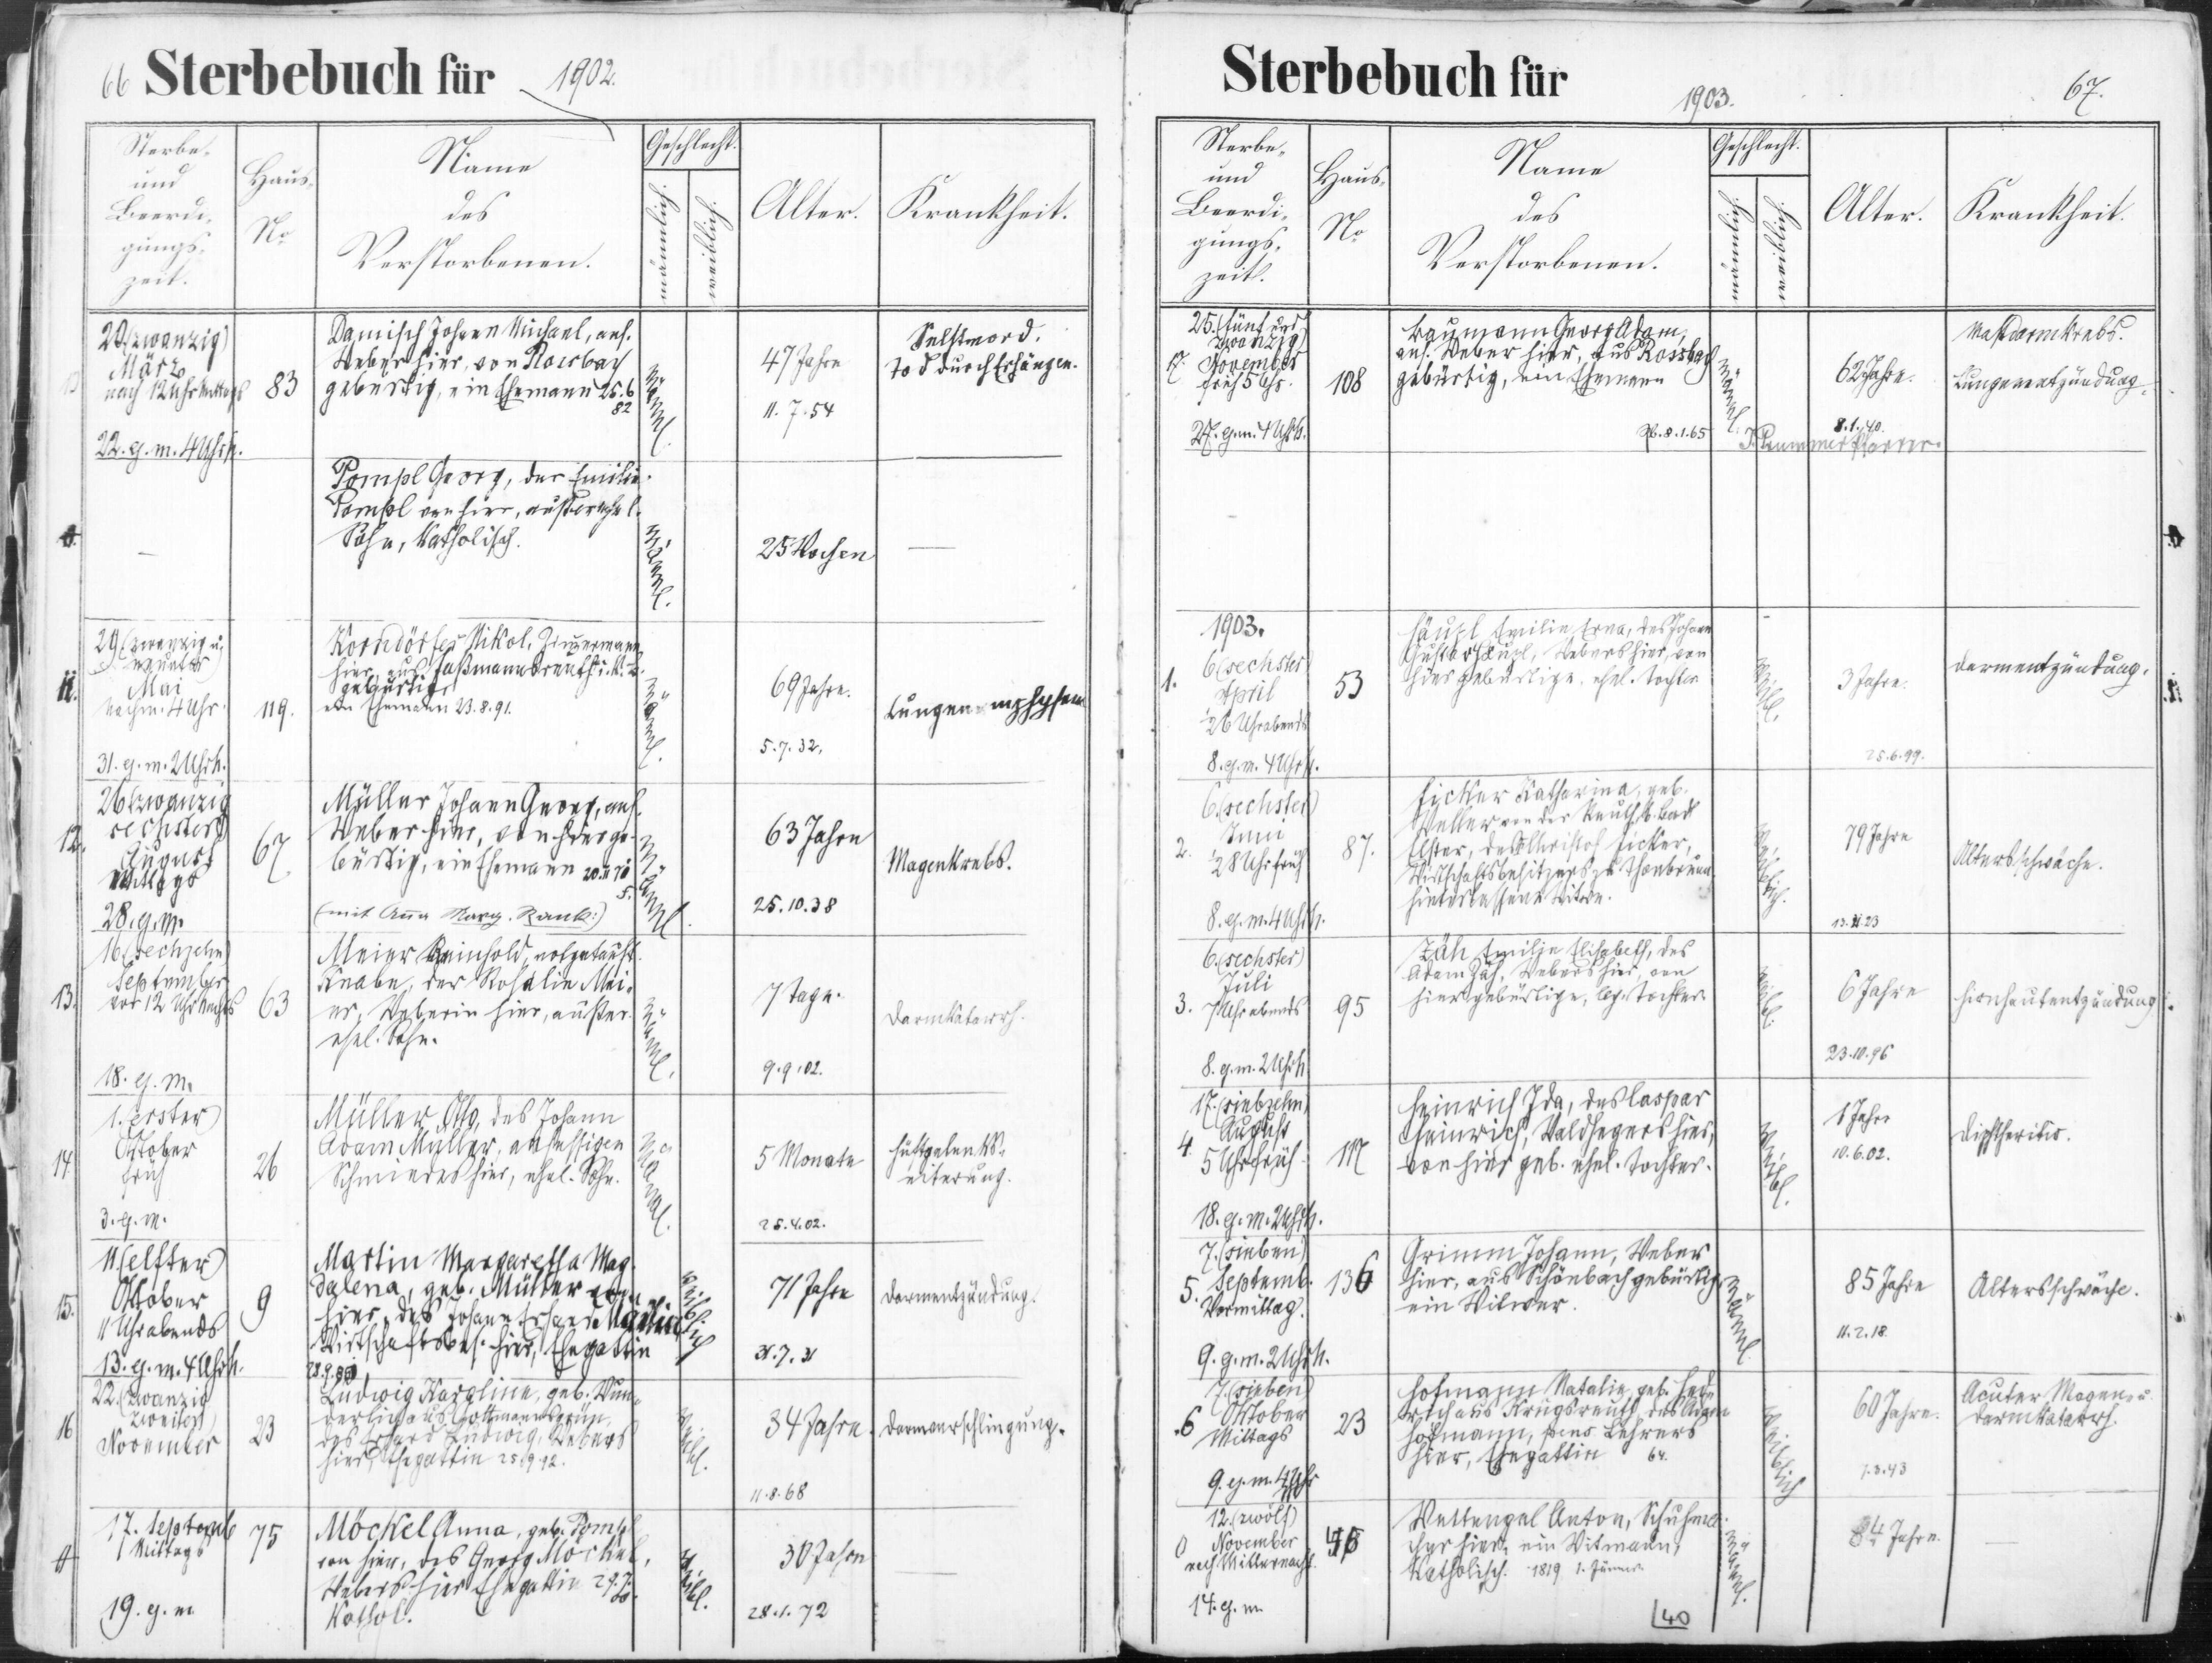 66 Sterbebuch für 1902.
Sterbe- und Beerdi- gungs- zeit.
Haus- No
Name des Verstorbenen.
Geschlecht.
männlich.
weiblich.
Alter.
Krankheit.
20 (zwanzig)
März
nach 12 Uhr Mittags
22. g. m. 4 Uhr
83
Damisch Johann Michael, ans.
Weber hier, von Rossbach
gebürtig, ein Ehemann 25.6
82
männl.
47 Jahre
11.7.54
Selbstmord.
Tod durch Erhängen.
—
Pompl Georg, der Emilie
Pompl von hier, außerehel.
Sohn, Katholisch.
männl.
25 Wochen
—
11.
29 (zwanzig u.
neunter)
Mai
nachm. 4 Uhr
31. g. m. 2 Uhr
119.
Korndörfer Nikol, Zimmermann
hier, aus
gebürtig
ein Ehemann 23.8.91.
männl.
69 Jahre.
5.7.32.
Lungenemphysem
12.
26 (zwanzig
sechster)
August
Mittags
28. g. m.
67
Müller Johann Georg, ans.
Weber hier, von hier ge-
bürtig, ein Ehemann 20.
(mit Anna Marg. Rank:)
männl.
63 Jahre
25.10.38
Magenkrebs.
13.
16 (sechzehn)
September
vor 12 Uhr Nachts
18. g. m.
63
Meier Reinhold, notgetauft.
Knabe, der Rosalie Mei-
er, Weberin hier, außer-
ehel. Sohn.
männl.
7 Tage.
9.9.02.
Darmkatarrh.
14
1. (erster)
Oktober
früh
3. g. m.
26
Müller Otto, des Johann
Adam Müller, ansässigen
Schmiedes hier, ehel. Sohn.
männl.
5 Monate
25.4.02.
Hüftgelenks-
eiterung.
15.
11 (elfter)
Oktober
11 Uhr abends
13. g. m. 4 Uhr
9
Martin Margaretha Mag-
dalena, geb. Müller von
hier, des Johann Erhard Martin
Wirtschaftsbes. hier, Ehegattin
weiblich
71 Jahre
31.7.31
Darmentzündung.
16
22. (zwanzig
zweiter)
November
23
Ludwig Karoline, geb. Wun-
derlich aus Gottmannsgrün,
des Erhard Ludwig, Webers
hier, Ehegattin 25.9.92.
weibl.
34 Jahre.
11.8.68
Darmverschlingung.
17. Septemb
Mittags
19. g. m
75
Möckel Anna, geb. Pompl
von hier, des Georg Möckel,
Webers hier Ehegattin 29.7.
Kathol.
weibl.
30 Jahre
28.1.72
—
Sterbebuch für 1903. 67.
Sterbe- und Beerdi- gungs- zeit.
Haus- No
Name des Verstorbenen.
Geschlecht.
männlich.
weiblich.
Alter.
Krankheit.
17.
25. (fünf und
zwanzig)
November
früh 5 Uhr.
27. g. m. 4 Uhr.
108
Baumann Georg Adam,
ans. Weber hier, aus Rossbach
gebürtig, ein Ehemann
8.1.65
männl.
62 Jahre.
8.1.40.
Mastdarmkrebs.
Lungenentzündung.
Pfarrer.
1903.
1.
6 (sechster)
April
1/2 6 Uhr abends
8. g. m. 4 Uhr.
53
Häupl Emilie Erna, des Johann
Gustav Häupl, Webers hier, von
hier gebürtige ehel. Tochter
weibl.
3 Jahre.
25.6.99.
Darmentzündung.
2.
6. (sechster)
Juni
1/2 8 Uhr früh
8. g. m. 4 Uhr.
87.
Ficker Katharina, geb.
Elster, des Christof Ficker,
Wirtschaftsbesitzers zu Thonbrunn
hinterlassene Witwe.
weiblich.
79 Jahre
Altersschwäche.
3.
6. (sechster)
Juli
7 Uhr abends
8. g. m. 2 Uhr
95
Zäh Emilie Elisabeth, des
Adam Zäh, Webers hier, von
hier gebürtige, leg. Tochter
weibl.
6 Jahre
23.10.96
Hirnhautentzündung
4.
17. (siebzehn)
August
5 Uhr früh
18. g. m. 2 Uhr.
Heinrich Ida, des Caspar
Heinrich, Waldhegers hier,
von hier geb. ehel. Tochter.
weibl.
1 Jahr
10.6.02.
Diphtheritis.
5.
7. (sieben)
Septemb.
Vormittag.
9. g. m. 2 Uhr.
136
Grimm Johann, Weber
hier, aus Schönbach gebürtig
ein Witwer.
männl.
85 Jahre
11.2.18.
Altersschwäche.
6
7. (sieben)
Oktober
Mittags
9. g. m. 4 Uhr
23
Hofmann Natalie, geb.
aus Krugsreuth, des Adam
Hofmann, pens. Lehrers
hier, Ehegattin 64.
weiblich
60 Jahre.
1.3.43
Acuter Magen- u.
Darmkatarrh.
12. (zwölf)
November
nach Mitternacht
14. g. m.
Wettengel Anton, Schuhma-
cher hier, ein Witmann,
Katholisch. 1819 1. Jänner.
männl.
84 Jahre.
—
40